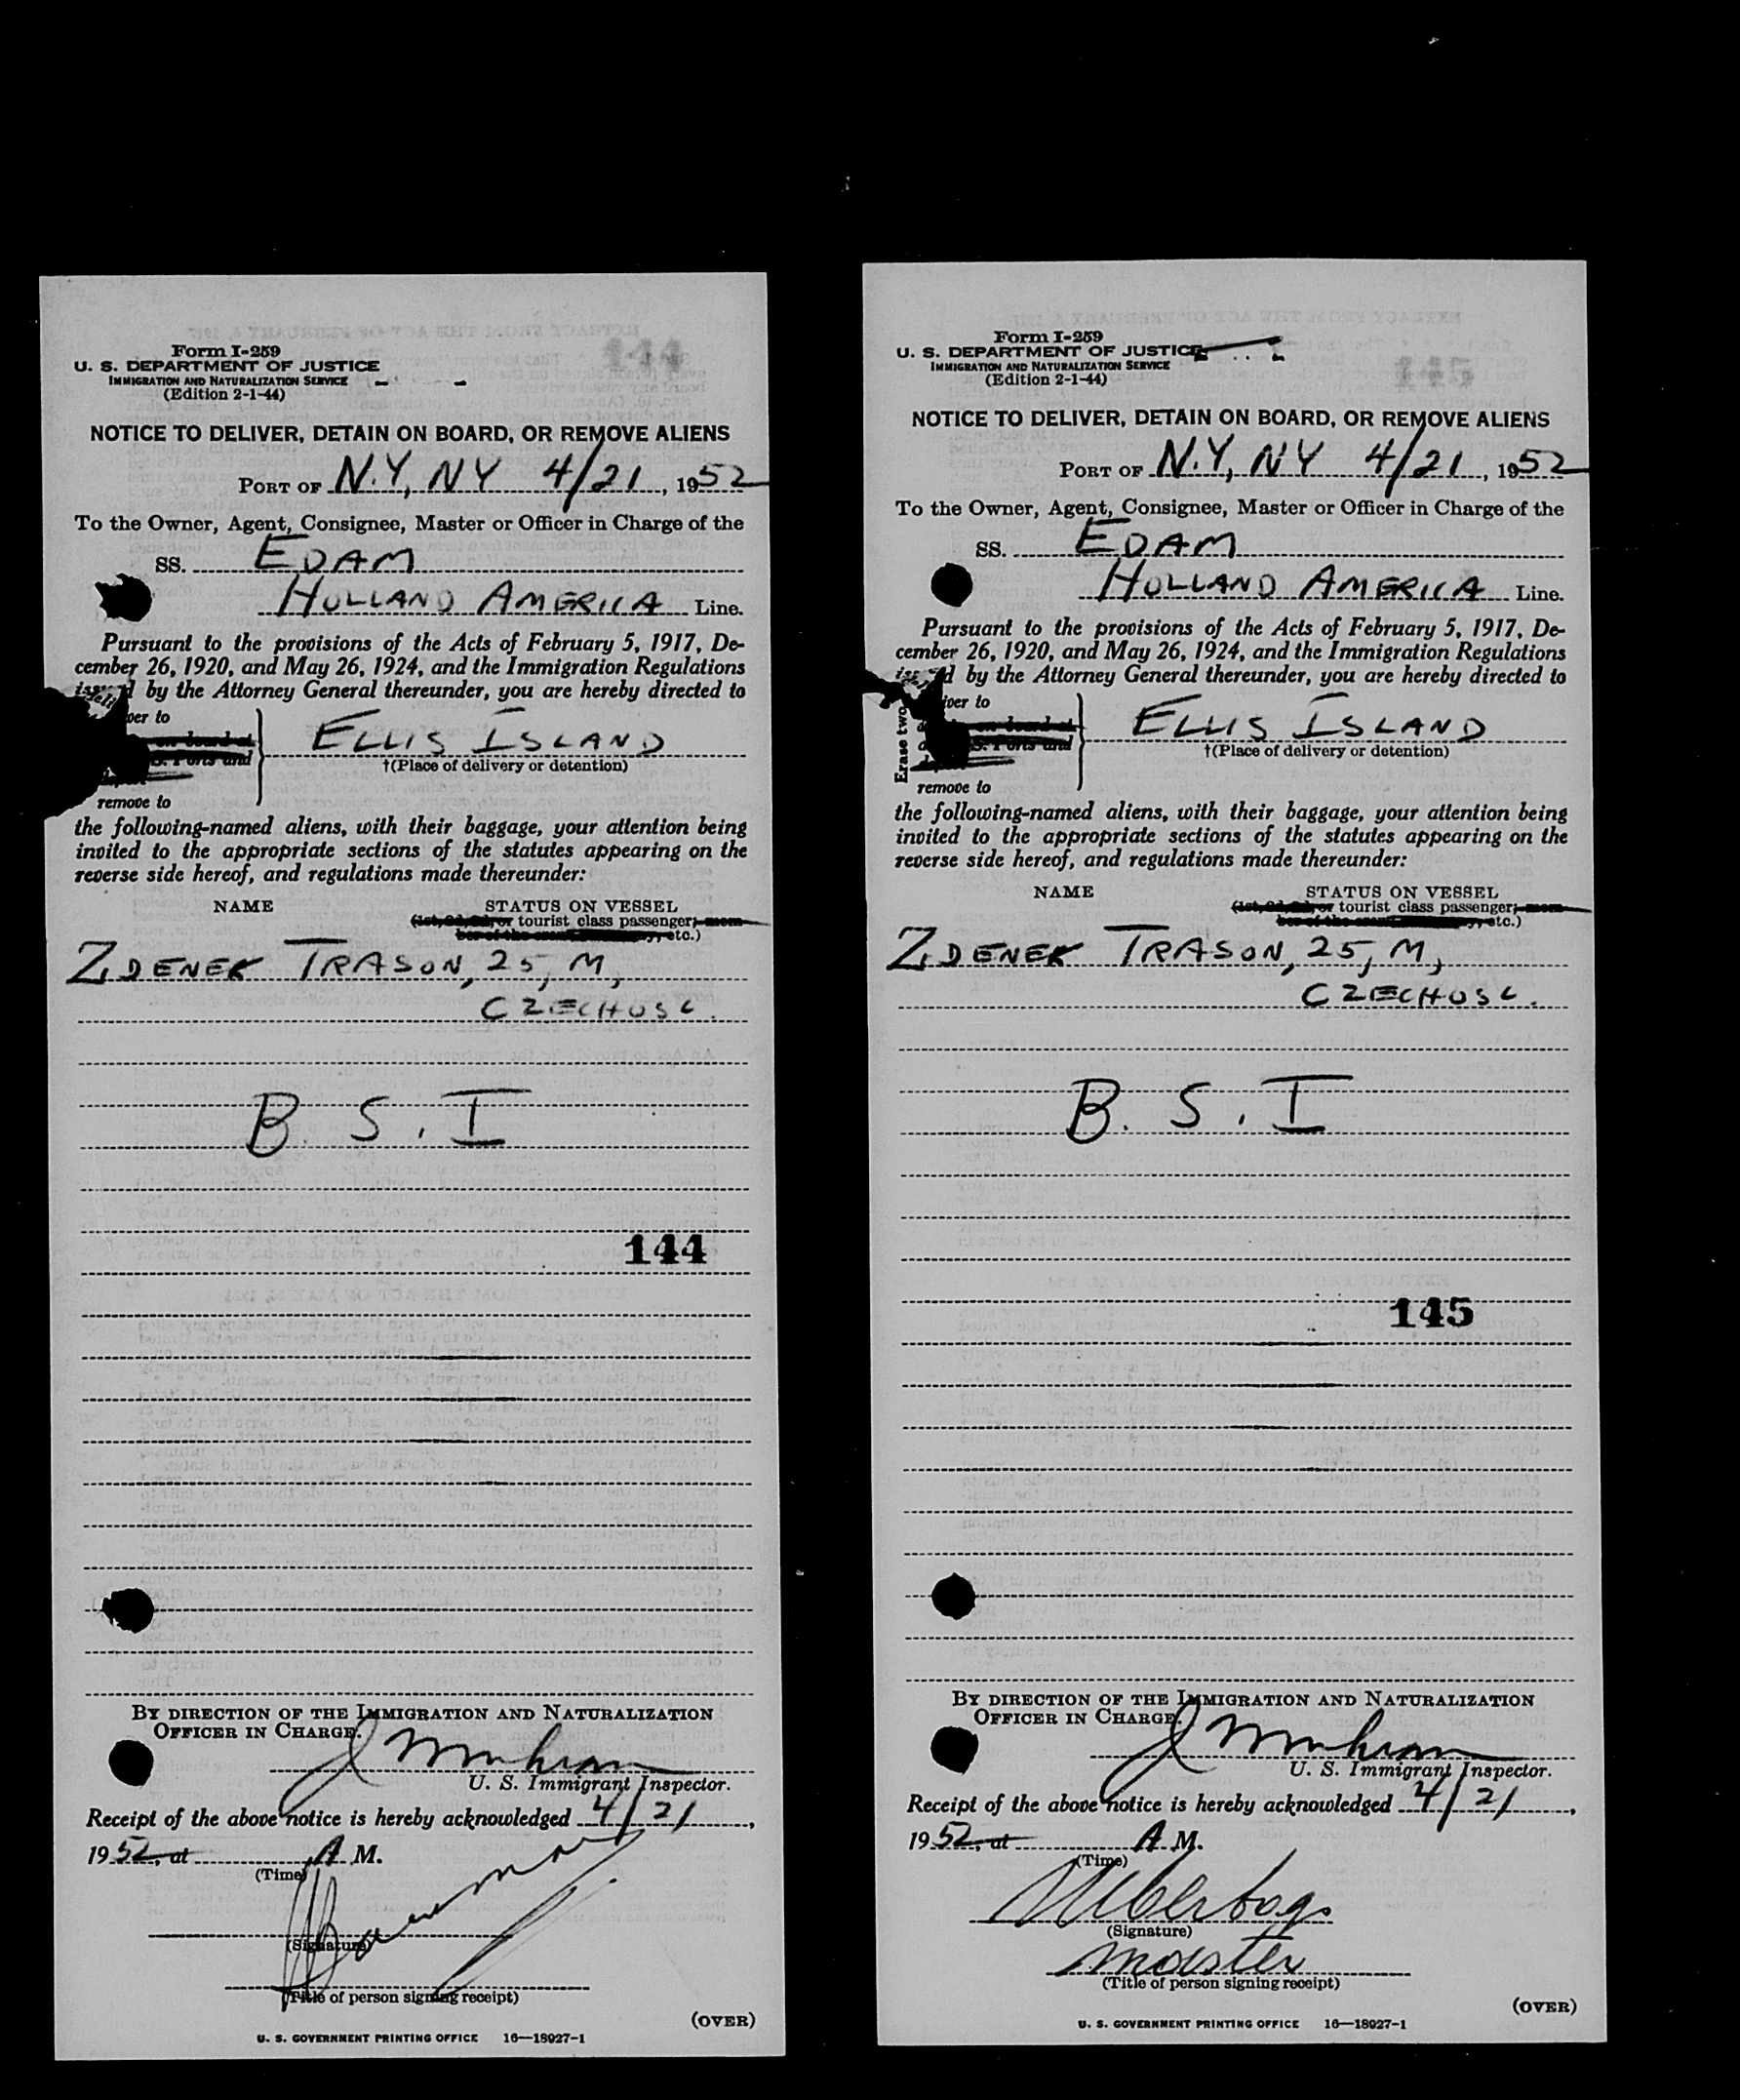 Form I-259
U. S. DEPARTMENT OF JUSTICE
IMMIGRATION AND NATURALIZATION SERVICE
(Edition 2-1-44)
144
NOTICE TO DELIVER, DETAIN ON BOARD, OR REMOVE ALIENS
PORT OF N.Y, NY 4/21, 1952
To the Owner, Agent, Consignee, Master or Officer in Charge of the
SS. EDAM
HOLLAND AMERICA Line.
Pursuant to the provisions of the Acts of February 5, 1917, De-
cember 26, 1920, and May 26, 1924, and the Immigration Regulations
by the Attorney General thereunder, you are hereby directed to
to
ELLIS ISLAND
S. Ports and
†(Place of delivery or detention)
remove to
the following-named aliens, with their baggage, your attention being
invited to the appropriate sections of the statutes appearing on the
reverse side hereof, and regulations made thereunder:
NAME STATUS ON VESSEL
or tourist class passenger;
etc.)
ZDENEK TRASON, 25, M,
CZECHOSL.
B. S. I
144
BY DIRECTION OF THE IMMIGRATION AND NATURALIZATION
OFFICER IN CHARGE.
U. S. Immigrant Inspector.
Receipt of the above notice is hereby acknowledged 4/21,
1952, at A M.
(Time)
(Signature)
(Title of person signing receipt)
(OVER)
U. S. GOVERNMENT PRINTING OFFICE 16—18927-1
Form I-259
U. S. DEPARTMENT OF JUSTICE
IMMIGRATION AND NATURALIZATION SERVICE
(Edition 2-1-44)
NOTICE TO DELIVER, DETAIN ON BOARD, OR REMOVE ALIENS
PORT OF N.Y, NY 4/21, 1952
To the Owner, Agent, Consignee, Master or Officer in Charge of the
SS. EDAM
HOLLAND AMERICA Line.
Pursuant to the provisions of the Acts of February 5, 1917, De-
cember 26, 1920, and May 26, 1924, and the Immigration Regulations
by the Attorney General thereunder, you are hereby directed to
Erase two
to
ELLIS ISLAND
S. Ports and
†(Place of delivery or detention)
remove to
the following-named aliens, with their baggage, your attention being
invited to the appropriate sections of the statutes appearing on the
reverse side hereof, and regulations made thereunder:
NAME STATUS ON VESSEL
or tourist class passenger;
etc.)
ZDENEK TRASON, 25, M,
CZECHOSL.
B. S. I
145
BY DIRECTION OF THE IMMIGRATION AND NATURALIZATION
OFFICER IN CHARGE.
U. S. Immigrant Inspector.
Receipt of the above notice is hereby acknowledged 4/21,
1952, at A M.
(Time)
(Signature)
(Title of person signing receipt)
(OVER)
U. S. GOVERNMENT PRINTING OFFICE 16—18927-1